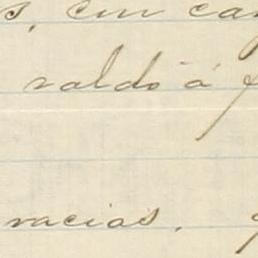 s, em ca
saldo á
racias.